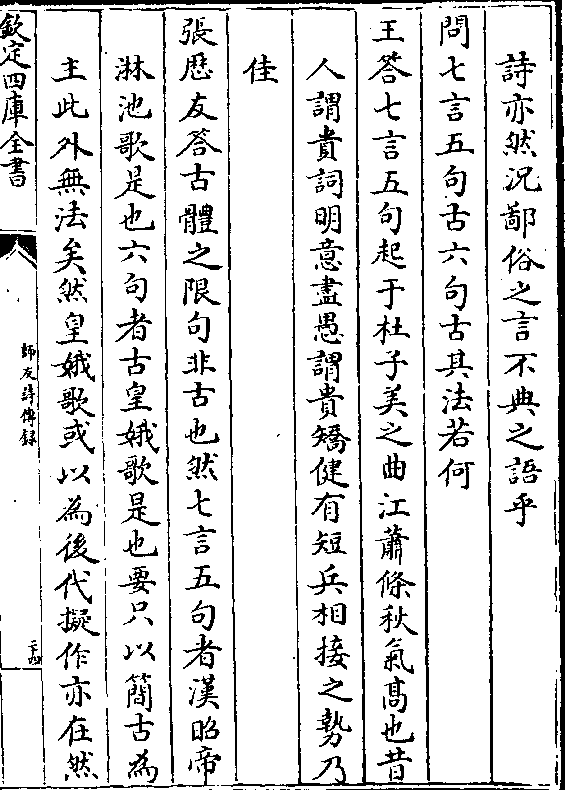 詩亦然況鄙俗之言不典之語乎
問七言五句古六句古其法若何
王答七言五句起于杜子美之曲江蕭條秋氣髙也昔
人謂貴詞明意盡愚謂貴矯健有短兵相接之勢乃
佳
張厯友答古體之限句非古也然七言五句者漢昭帝
淋池歌是也六句者古皇娥歌是也要只以簡古為
主此外無法矣然皇娥歌或以為後代擬作亦在然
欽定四庫全書
師友詩傳錄